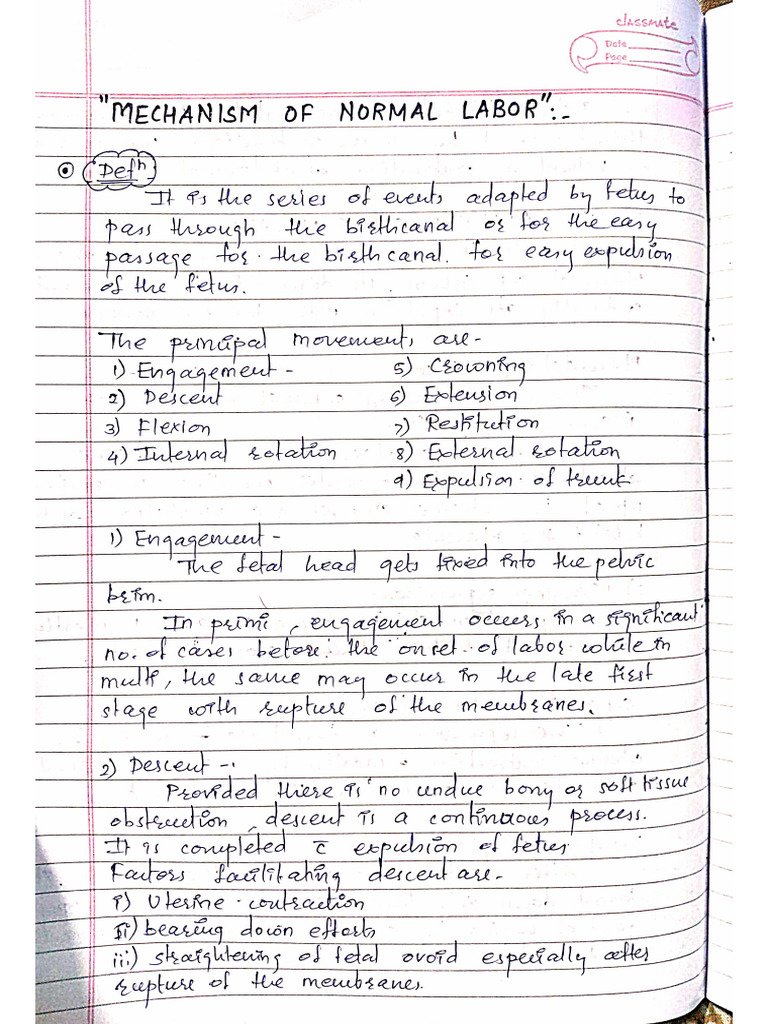 classmate
Date
Page
"MECHANISM OF NORMAL LABOR":-
Defⁿ
It is the series of events adapted by fetus to
pass through the birthcanal or for the easy
passage for the birth canal. for easy expulsion
of the fetus.
The principal movements are-
1) Engagement -
2) Descent
3) Flexion
4) Internal rotation
5) Crowning
6) Extension
7) Restitution
8) External rotation
9) Expulsion of trunk
1) Engagement -
The fetal head gets fixed into the pelvic
brim.
In primi, engagement occurs in a significant
no. of cases before the onset of labor while in
multi, the same may occur in the late first
stage with rupture of the membranes.
2) Descent -
Provided there is no undue bony or soft tissue
obstruction, descent is a continuous process.
It is completed c̄ expulsion of fetus
Factors facilitating descent are-
i) Uterine contraction
ii) bearing down efforts
iii) straightening of fetal ovoid especially after
rupture of the membranes.